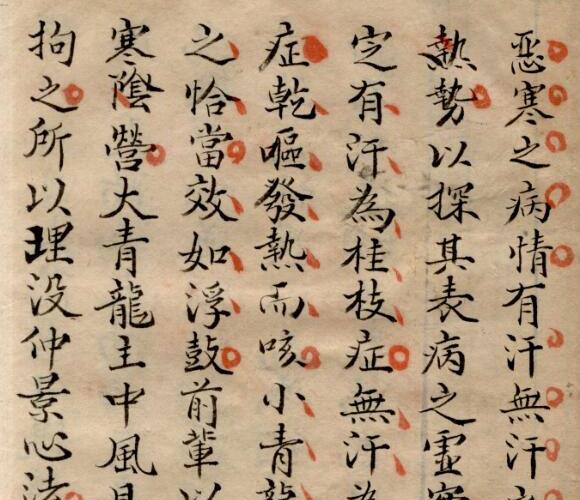 惡寒之病情有汗無汗
熱勢以探其表病之虛實
定有汗為桂枝症無汗為
症乾嘔發熱而咳小青龍
之恰當效如浮鼓前輩以
寒陰營大青龍主中風見
拘之所以埋没仲景心法